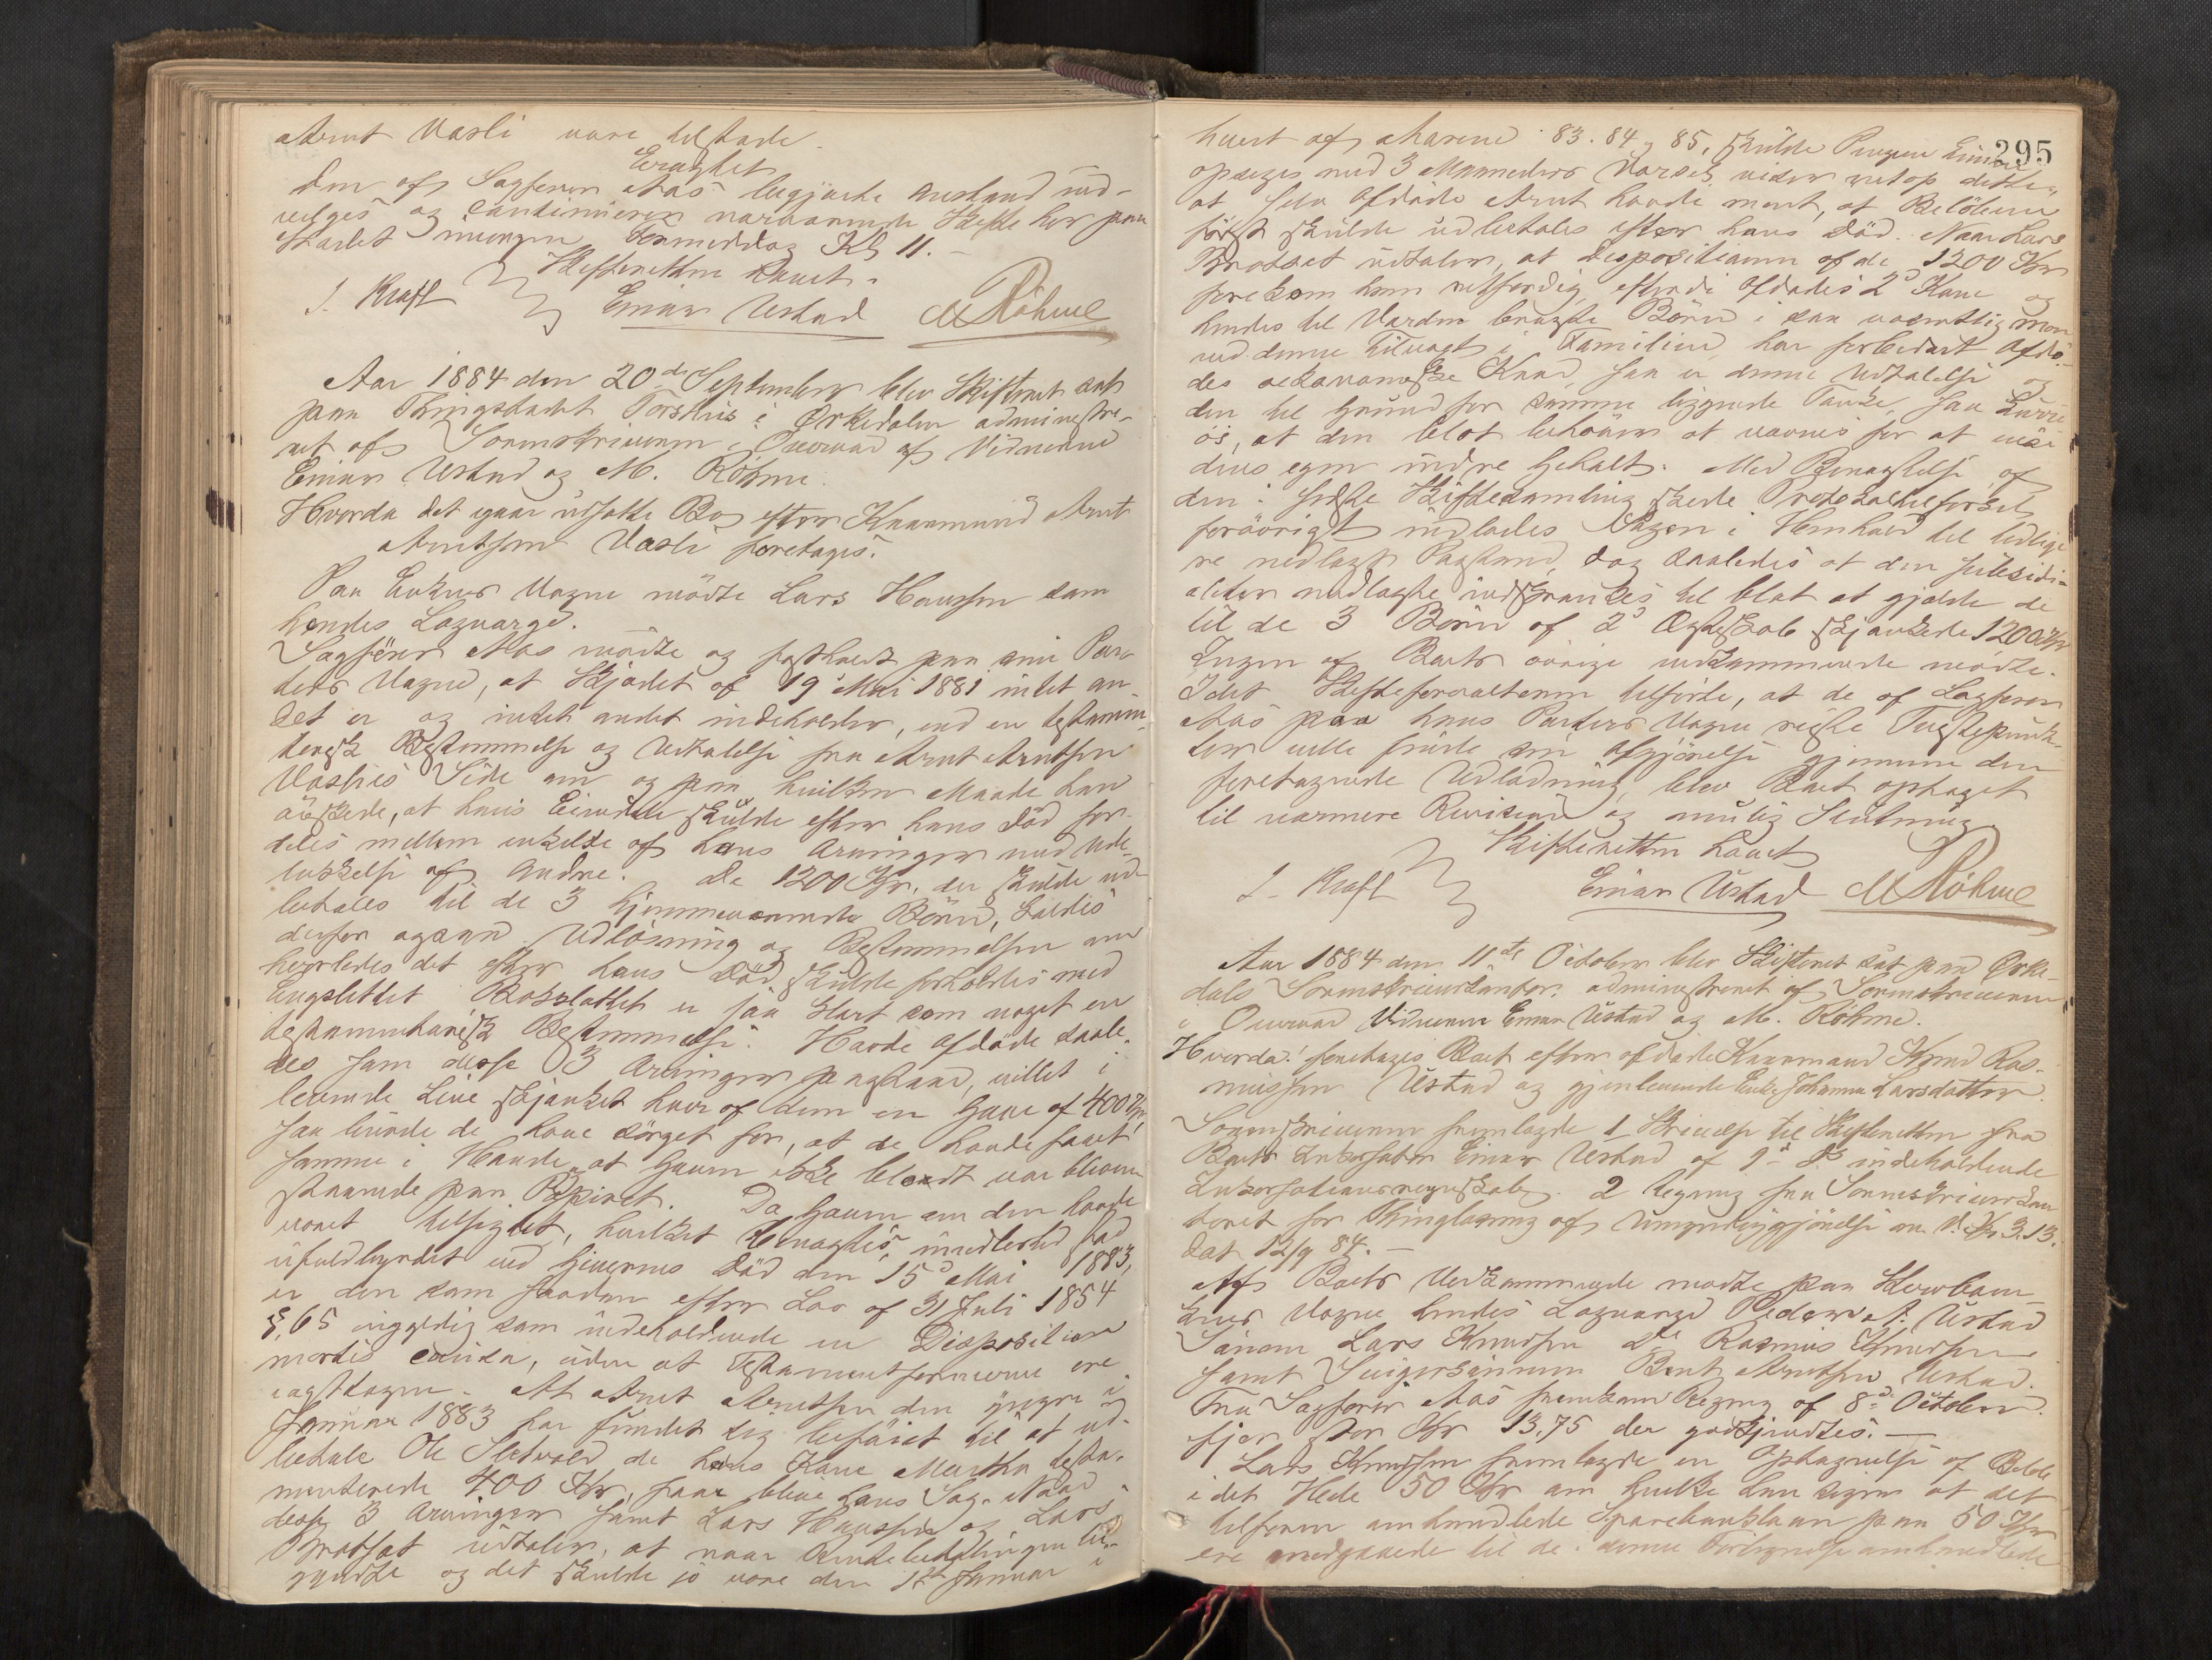 Arnt Vasli vare tilstade.
Eragtet
Den af Sagfører Aas begjærte Anstand ind-
vilges og continuerer nærværende Skifte her paa
Stædet imorgen Formiddag Kl 11.–
Skifteretten hævet.
I. Kraft Einar Ustad M Röhme
Aar 1884 den 20de September blev Skifteret sat
paa Thingstedet Torshus i Ørkedalen administre-
ret af Sorenskriveren i Overvær af Vidnerne
Einar Ustad og M. Röhme.
Hvorda det igaar udsatte Bo efter Kaarmand Arnt
Arntsen Vasli foretages.
Paa Enkens Vegne mödte Lars Hansen som
hendes Laugværge.
Sagförer Aas mödte og fastholdt paa sine Par-
ters Vegne, at Skjödet af 19 Mai 1881 intet an-
det er og intet andet indeholder, end en testamen-
tarisk Bestemmelse og Udtalelse fra Arnt Arntsen
Vaslies Side om og paa hvilken Maade han
önskede, at hans Eiendele skulde efter hans Död for-
deles mellem enkelte af hans Arvinger med Ude-
lukkelse af Andre. De 1200 Kr. der skulde ud-
betales til de 3 hjemmeværende Börn, kaldes
derfor ogsaa Udlösning og Bestemmelsen om
hvorledes det efter hans Död skulde forholdes med
Engslettet Bosslettet er saa klart som noget en
testamentarisk Bestemmelse. Havde afdöde saale-
des som disse 3 Arvinger paastaar, villet i
levende Live skjænket hver af dem en Gave af 400 Kr,
saa burde de have sörget for, at de havde faaet
samme i Hænde, at Gaven ikke blondt var bleven
staaende paa Papiret. Da Gaven om den havde
været tilsigtet, hvilket benægtes, imidlertid stod
ufuldbyrdet ved Giverens Död den 15 Mai 1883,
er den som saadan efter Lov af 31 Juli 1854
§ 65 ugyldig som indeholdende en Disposition
mortis causa, uden at Testamentsformerne ere
iagttagne. At Arnt Arntsen den yngre i
Januar 1883 har fundet sig beföiet til at ud-
betale Ole Sletvold de hans Kone Martha testa-
menterede 400 Kr, faar blive hans Sag. Naar
disse 3 Arvinger samt Lars Hansen og Lars
Bratset udtaler, at naar Rentebetalingen be-
gyndte og det skulde jo være den 1st Januar i
295
hvert af Aarene 83. 84 og 85, skulde Pengene kunne
opsiges med 3 Maaneders Varsel, viser netop dette,
at selv Afdöde Arnt havde ment, at Belöbene
först skulde udbetales efter hans Död. Naar Lars
Bratset udtaler, at Dispositionen af de 1200 Kr
forekom ham retfærdig, efterdi Afdødes 2 Kone og
hendes til Verden bragte Börn i saa væsentlig Mon
ved denne Tilvæxt i Familien, har forbedret Afdö-
des oekonomiske Kaar, saa er denne Udtalelse og
den til Grund for samme liggende Tanke, saa kurri-
ös, at den blot behöver at nævnes for at vise
dens egen indre Gehalt. Med Benægtelse af
den i sidste Skiftesamling skede Protokoltilförsel
forövrigt indlades Sagen i Henhold til tidlige-
re nedlagt Paastand, dog saaledes at den subsidi-
airter nedlagte indskrænkes til blot at gjælde de
til de 3 Börn af 2 Ægteskab skjænkede 1200 Kr
Ingen af Boets övrige vedkommende mödte.
Idet Skifteforvalteren tilförte, at de af Sagförer
Aas paa hans Parters Vegne reiste Tvistepunk-
ter ville finde sin Afgjörelse gjennem den
foretagende Udlodning, blev Boet optaget
til nærmere Revision og mulig Slutning.
Skifteretten hævet
I. Kraft Einar Ustad M Röhme
Aar 1884 den 11te October blev Skifteret sat paa Ørke-
dals Sorenskriverkontor, administreret af Sorenskriveren
i Overvær Vidnerne Einar Ustad og M. Röhme.
Hvorda! foretages Boet efter afdöde Kaarmand Knud Ras-
mussen Ustad og gjenlevende Enke Johanna Larsdatter.
Sorenskriveren fremlagde 1 Skrivelse til Skifteretten fra
Boets Inkassator Einar Ustad af 9 ds indeholdende
Inkassationsregnskab. 2 Regning fra Sorenskriverkon-
toret for Thinglæsning af Umyndiggjörelse m. v. Kr 3.13.
dat 12/9 84.–
Af Boets Vedkommende mødte paa Stervboen-
kens Vegne hendes Laugværge Peder A. Ustad
Sönnen Lars Knudsen do Rasmus Knudsen
samt Svigersönnen Bent Arntsen Ustad.
Fra Sagförer Aas fremkom Regning af 8de October
fjor stor Kr 13.75 der godkjendtes.–
Lars Knudsen fremlagde en Optegnelse af Belöb
i det Hele 50 Kr om hvilke han siger at det
tilforn omhandlede Sparebanklaan paa 50 Kr
ere medgaaede til de i denne Fortegnelse omhandlede